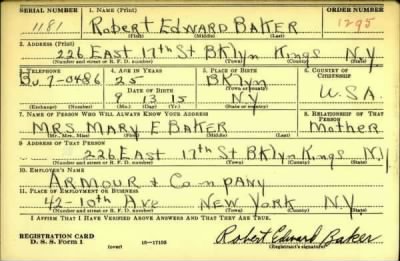 SERIAL NUMBER 1. NAME (Print) ORDER NUMBER
1181 Robert Edward BAKER 1295
(First) (Middle) (Last)
2. ADDRESS (Print)
226 EAST 17th St BKlyn Kings N.Y.
(Number and street or R. F. D. number) (Town) (County) (State)
3. TELEPHONE 4. AGE IN YEARS 5. PLACE OF BIRTH 6. COUNTRY OF CITIZENSHIP
Bu. 7-0486 25 BKlyn
DATE OF BIRTH (Town or county)
9 13 15 N.Y. U.S.A.
(Exchange) (Number) (Mo.) (Day) (Yr.) (State or country)
7. NAME OF PERSON WHO WILL ALWAYS KNOW YOUR ADDRESS 8. RELATIONSHIP OF THAT PERSON
MRS MARY E BAKER Mother
(Mr., Mrs., Miss) (First) (Middle) (Last)
9. ADDRESS OF THAT PERSON
226 EAST 17th St BKlyn Kings N.Y.
(Number and street or R. F. D. number) (Town) (County) (State)
10. EMPLOYER'S NAME
ARMOUR & COMPANY
11. PLACE OF EMPLOYMENT OR BUSINESS
42-10th Ave NEW YORK NY
(Number and street or R. F. D. number) (Town) (County) (State)
I AFFIRM THAT I HAVE VERIFIED ABOVE ANSWERS AND THAT THEY ARE TRUE.
REGISTRATION CARD
D. S. S. Form 1 (over) 16—17105 Robert Edward Baker
(Registrant's signature)